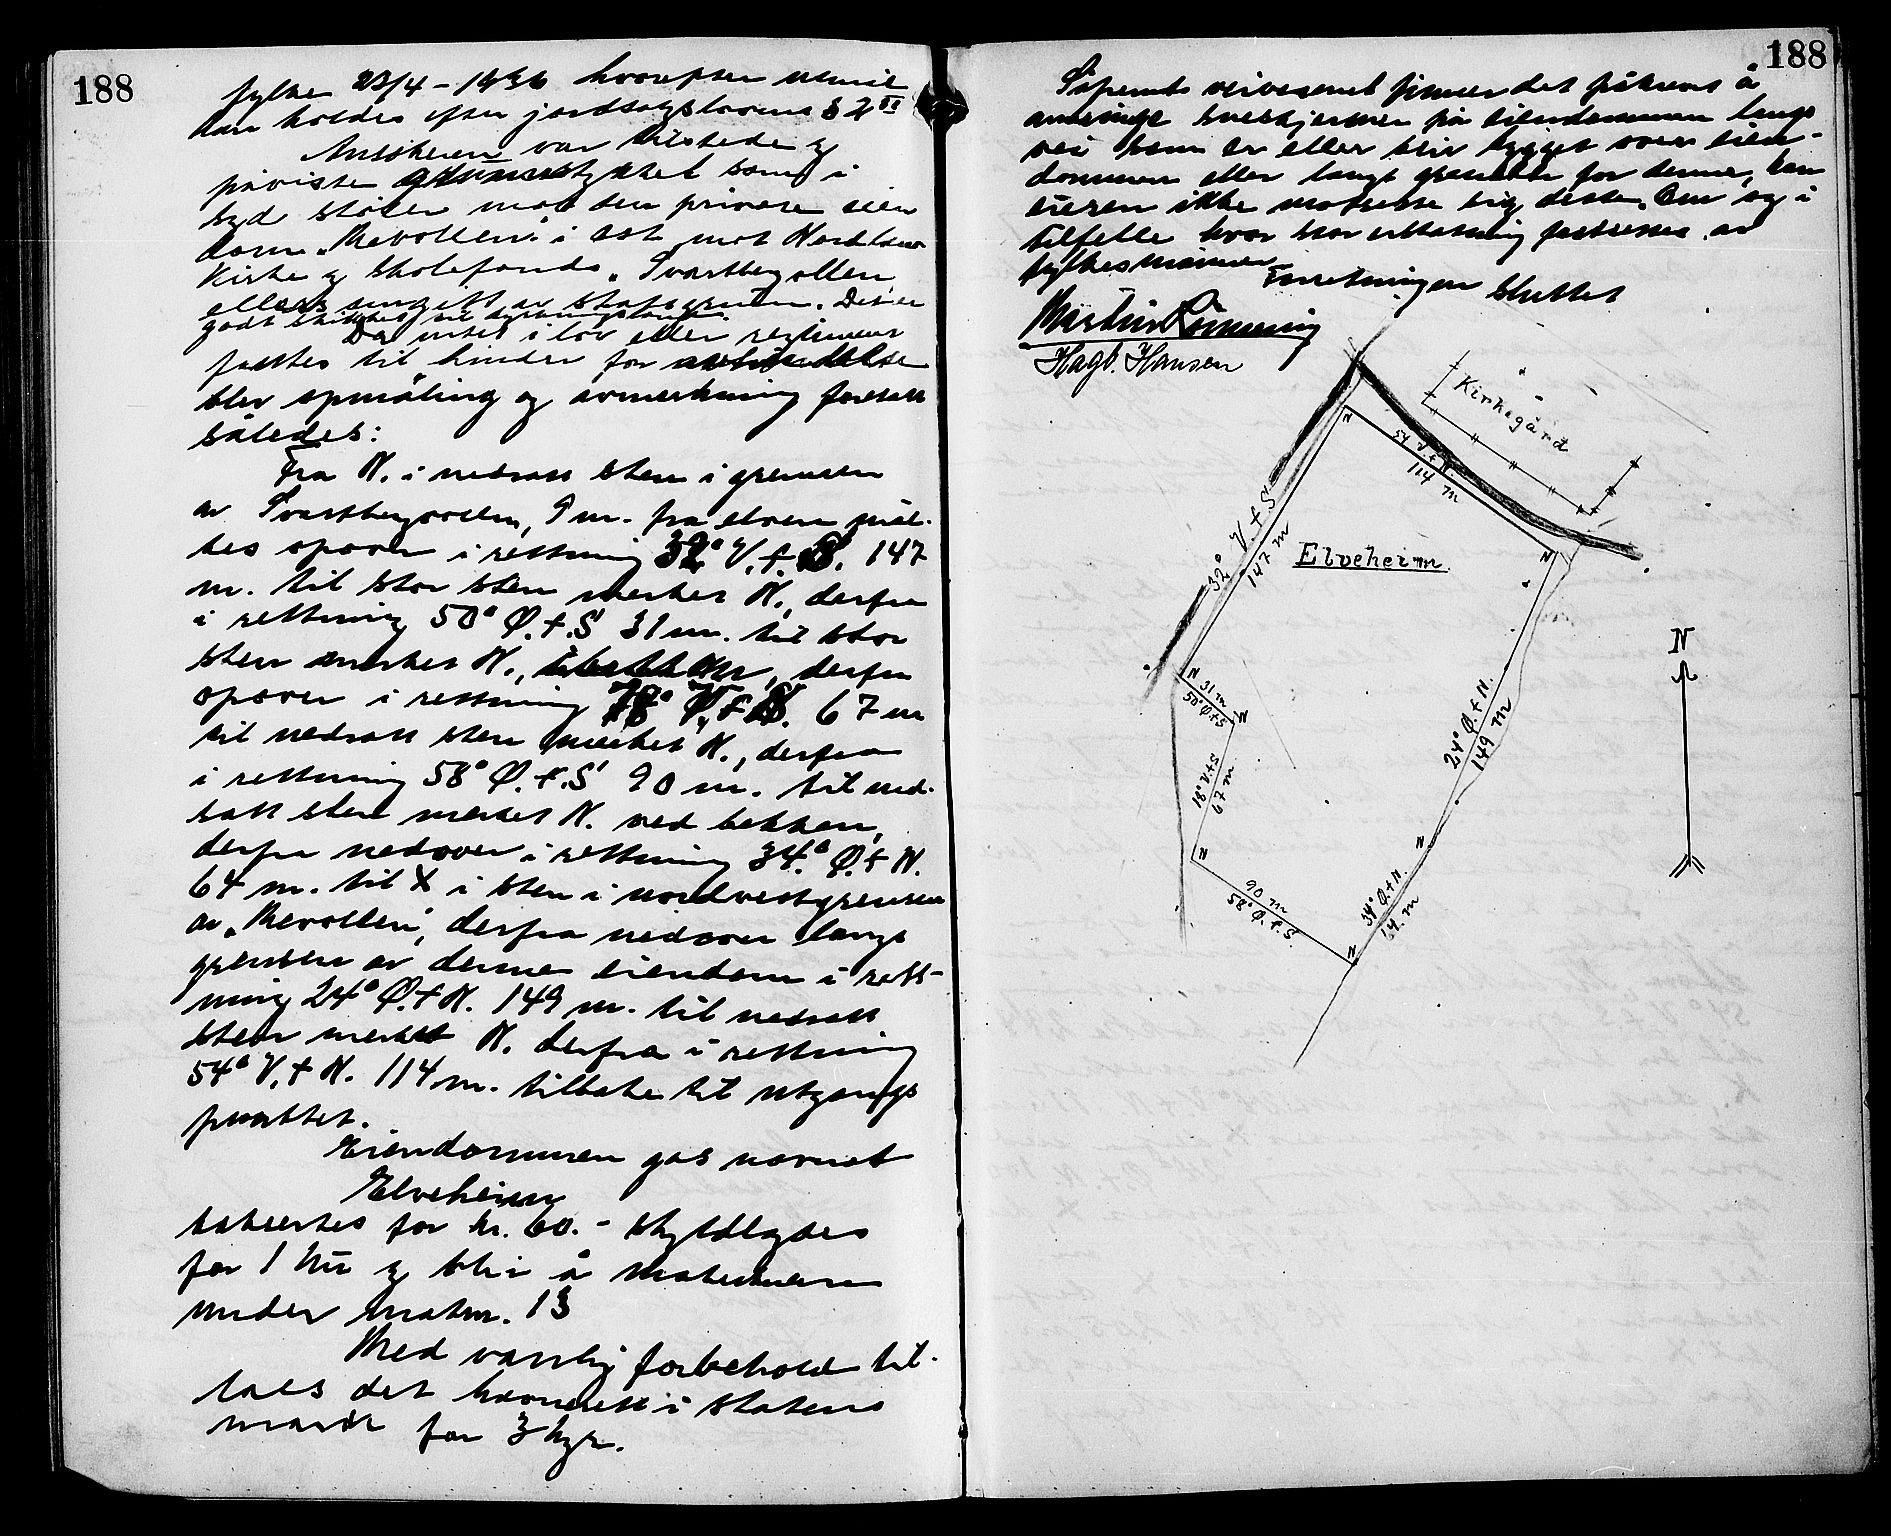 188
fylke 23/4 – 1936 hvorefter utmål
kan holdes efter jordsalgslovens § 2
Ansøkeren var tilstede og
påviste grunnstykket som i
syd støter mot den private eien
dom "Mevollen" i øst mot Nordlands
Kirke og Skolefonds "Svartbergvollen,
ellers omgitt av statsgrunn. Det er
godt skikket til dyrkningsland.
Da intet i lov eller reglement
fantes til hinder for avhendelse
blev opmåling og avmerkning foretatt
således:
Fra N. i nedsatt sten i grensen
av Svartbergvollen, 9 m. fra elven mål-
tes opover i rettning 32° V.t.S. 147
m. til stor sten merket N., derfra
i rettning 50° Ø.t.S 31 m. til stor
sten merket N., derfra
opover i rettning 18° V.t.S. 67 m
til nedsatt sten merket N., derfra
i rettning 58° Ø.t.S 90 m. til ned-
satt sten merket N. ved bekken,
derfra nedover i rettning 34° Ø.t.N.
64 m. til X i sten i nordvestgrensen
av "Mevollen", derfra nedover langs
grensen av denne eiendom i rett-
ning 24° Ø.t.N. 149 m. til nedsatt
sten merket N. derfra i rettning
54° V.t.N. 114 m. tilbake til utgangs
punktet.
Eiendommen gas navnet
Elveheim
taksertes for kr. 60.- skyldlagdes
for 1 øre og blir å matrikulere
under matr. 13
Med vanlig forbehold til-
laes det havnerett i statens
mark for 3 kyr.
188
Såfremt veivesenet finner det påkrevt å
anbringe sneskjermer på eiendommen langs
vei som er eller blir bygget over eien-
dommen eller langs grensene for denne, kan
eieren ikke motsette sig dette. Om og i
tilfelle hvor stor erstatning fastsettes av
fylkesmannen
Forretningen sluttet
Martin Rønning
Hagb. Hansen
Kirkegård
54° V.t.N.
114 m
32° V.t.S
147 m
Elveheim
N
N
N
31 m
50° Ø.t.S
N
18° V.t.S
67 m
N
90 m
58° Ø.t.S.
N
34° Ø.t.N.
64 m
N
24° Ø.t.N.
149 m
N